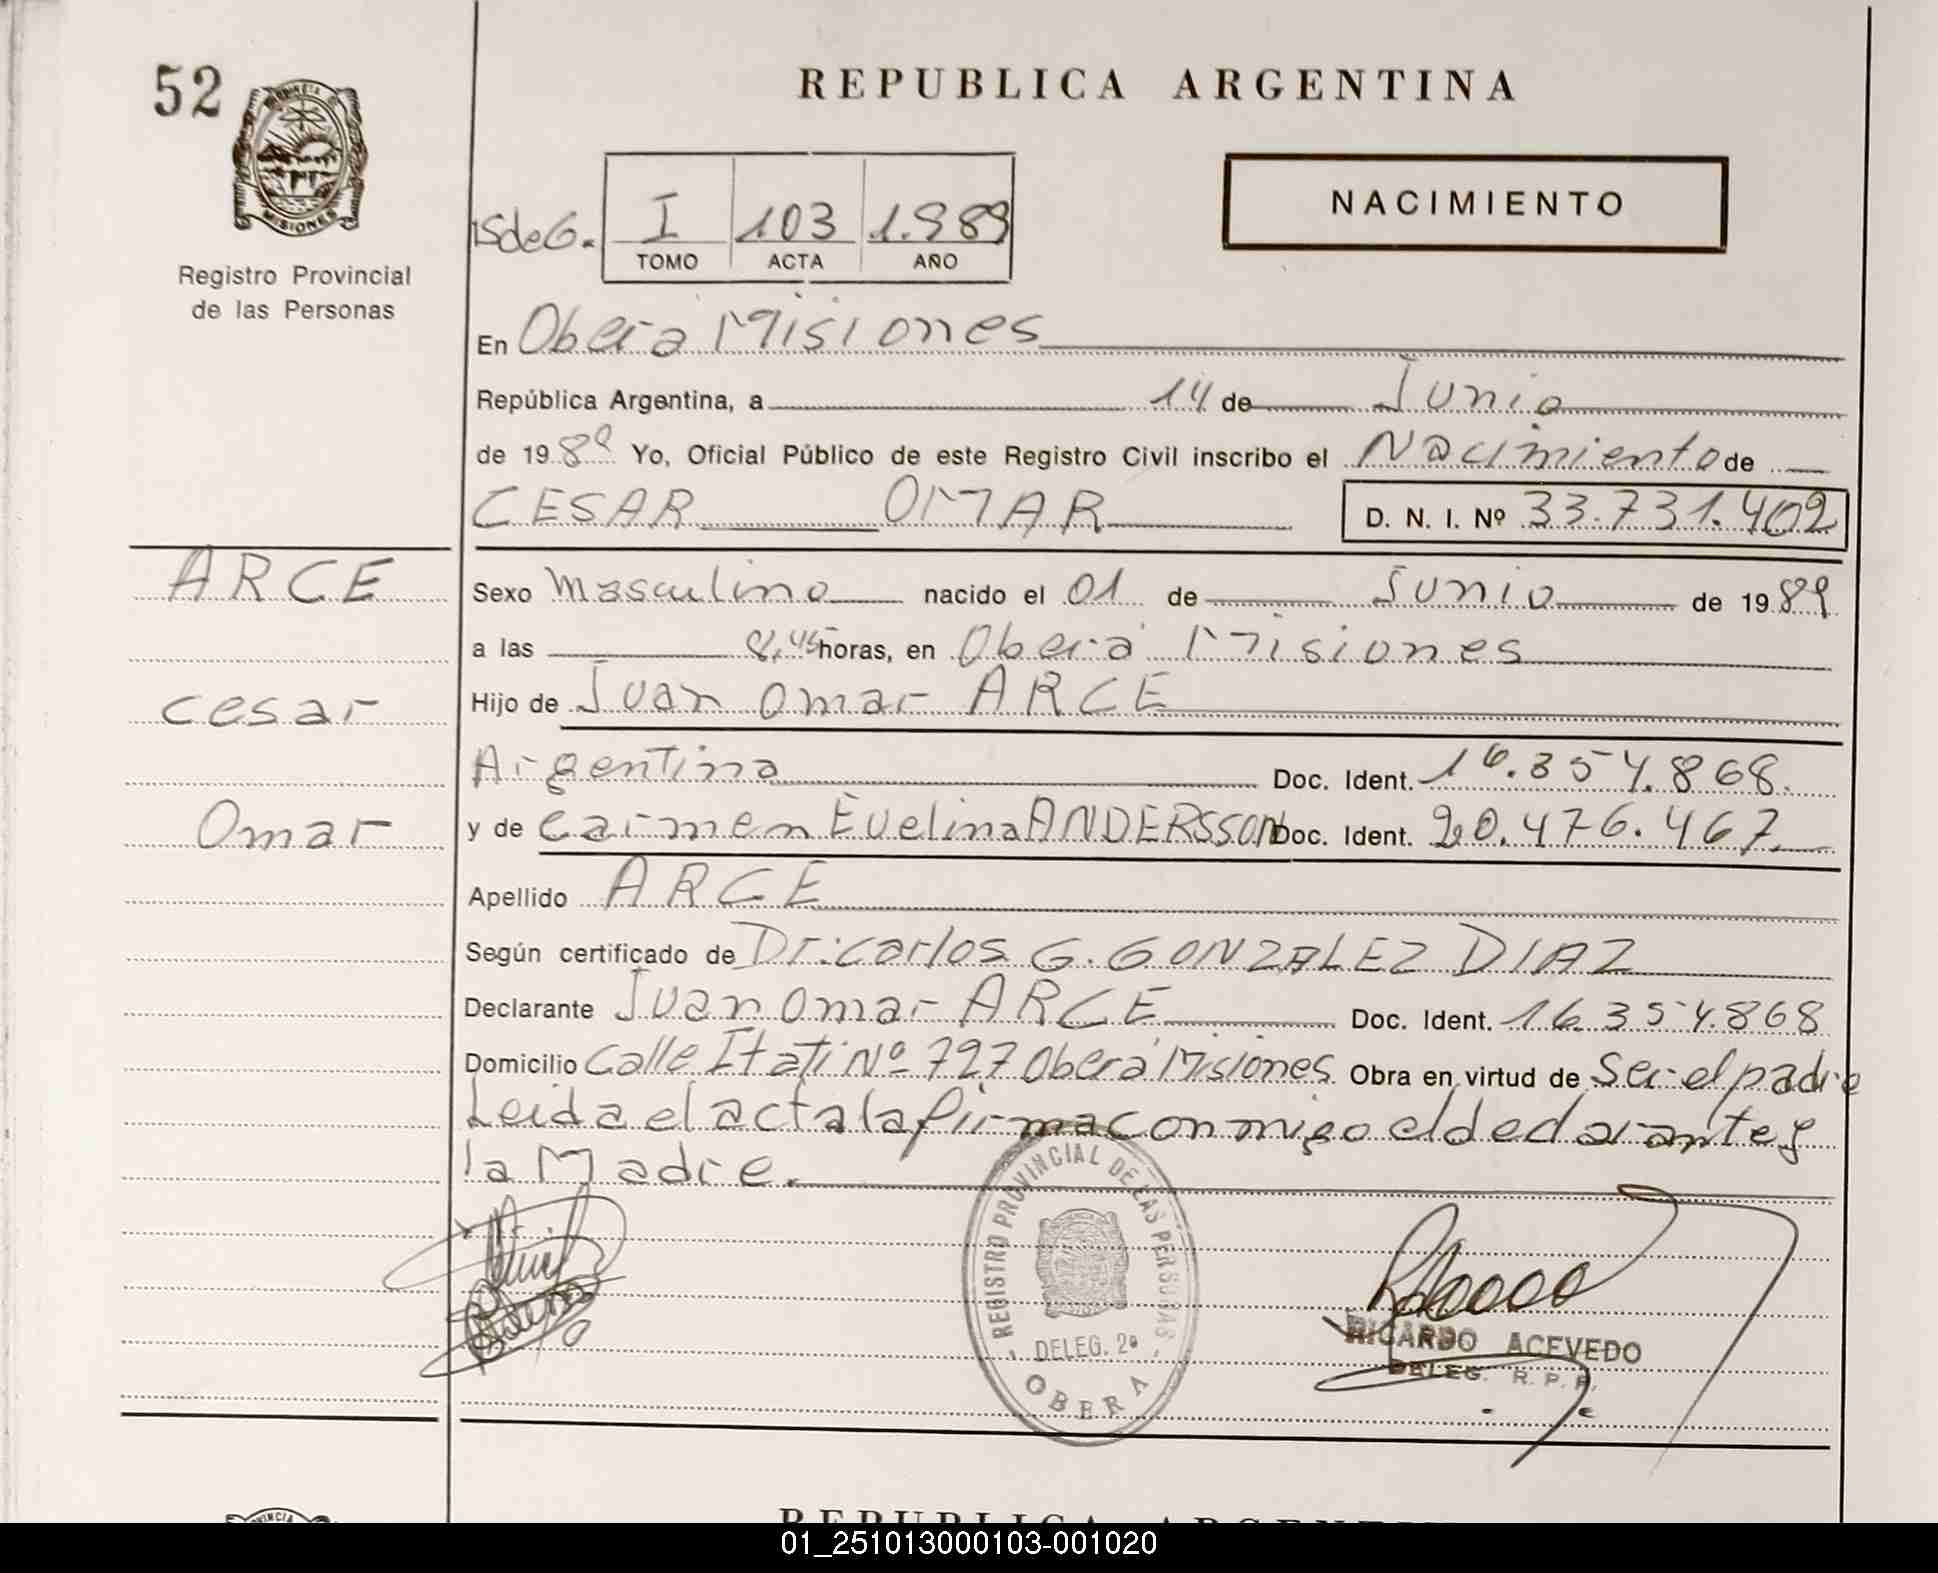 52
REPUBLICA ARGENTINA
MISIONES
NACIMIENTO
I 103 1.989
TOMO ACTA AÑO
Registro Provincial
de las Personas
En Oberá Misiones
República Argentina, a 14 de Junio
de 1989 Yo, Oficial Público de este Registro Civil inscribo el Nacimiento de
CESAR OMAR D. N. I. Nº 33.731.402
ARCE
Sexo Masculino nacido el 01 de Junio de 1989
a las 8,45 horas, en Oberá Misiones
cesar
Hijo de Juan Omar ARCE
Argentina Doc. Ident. 16.354.868.
Omar
y de Carmen Evelina ANDERSSON Doc. Ident. 20.476.467.
Apellido ARCE
Según certificado de Dr. Carlos G. GONZALEZ DIAZ
Declarante Juan Omar ARCE Doc. Ident. 16.354.868
Domicilio Calle Itatí Nº 727 Oberá Misiones Obra en virtud de Ser el padre
Leida el acta la firma conmigo el declarante y
la Madre.
REGISTRO PROVINCIAL DE LAS PERSONAS
DELEG. 2ª
OBERA
RICARDO ACEVEDO
DELEG. R. P. P.
REPUBLICA ARGENTI
01_251013000103-001020